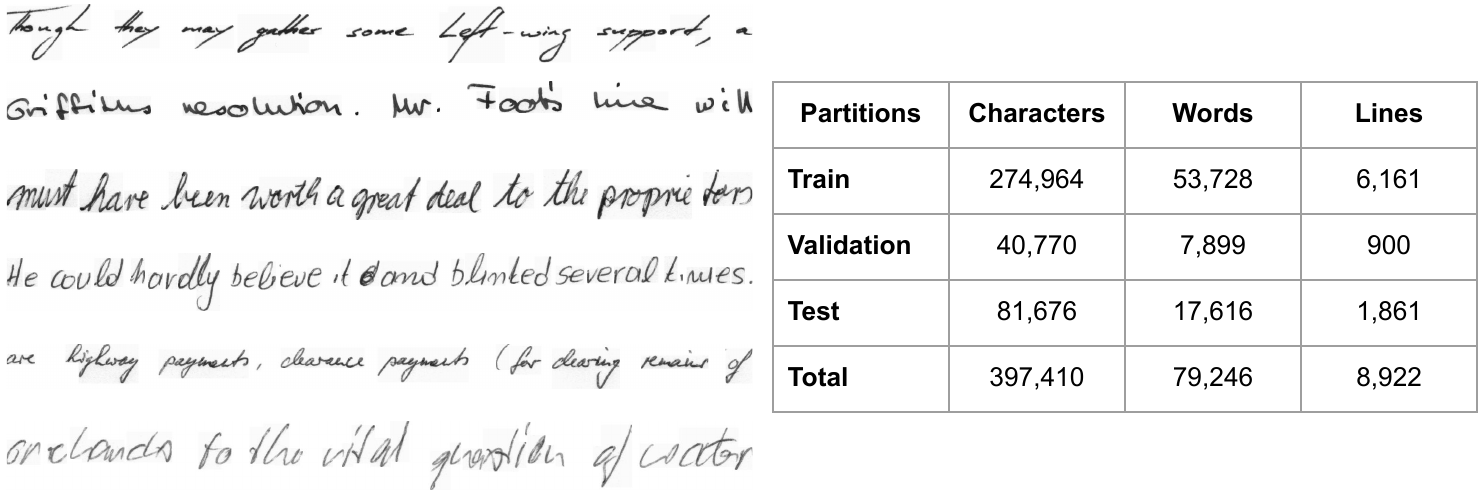 Though they may gather some Left-wing support, a
Griffiths resolution. Mr. Foot's line will
must have been worth a great deal to the proprietors
He could hardly believe it and blinked several times.
are highway payments, clearance payments (for clearing remains of
orchards to the vital question of water
Partitions Characters Words Lines
Train 274,964 53,728 6,161
Validation 40,770 7,899 900
Test 81,676 17,616 1,861
Total 397,410 79,246 8,922